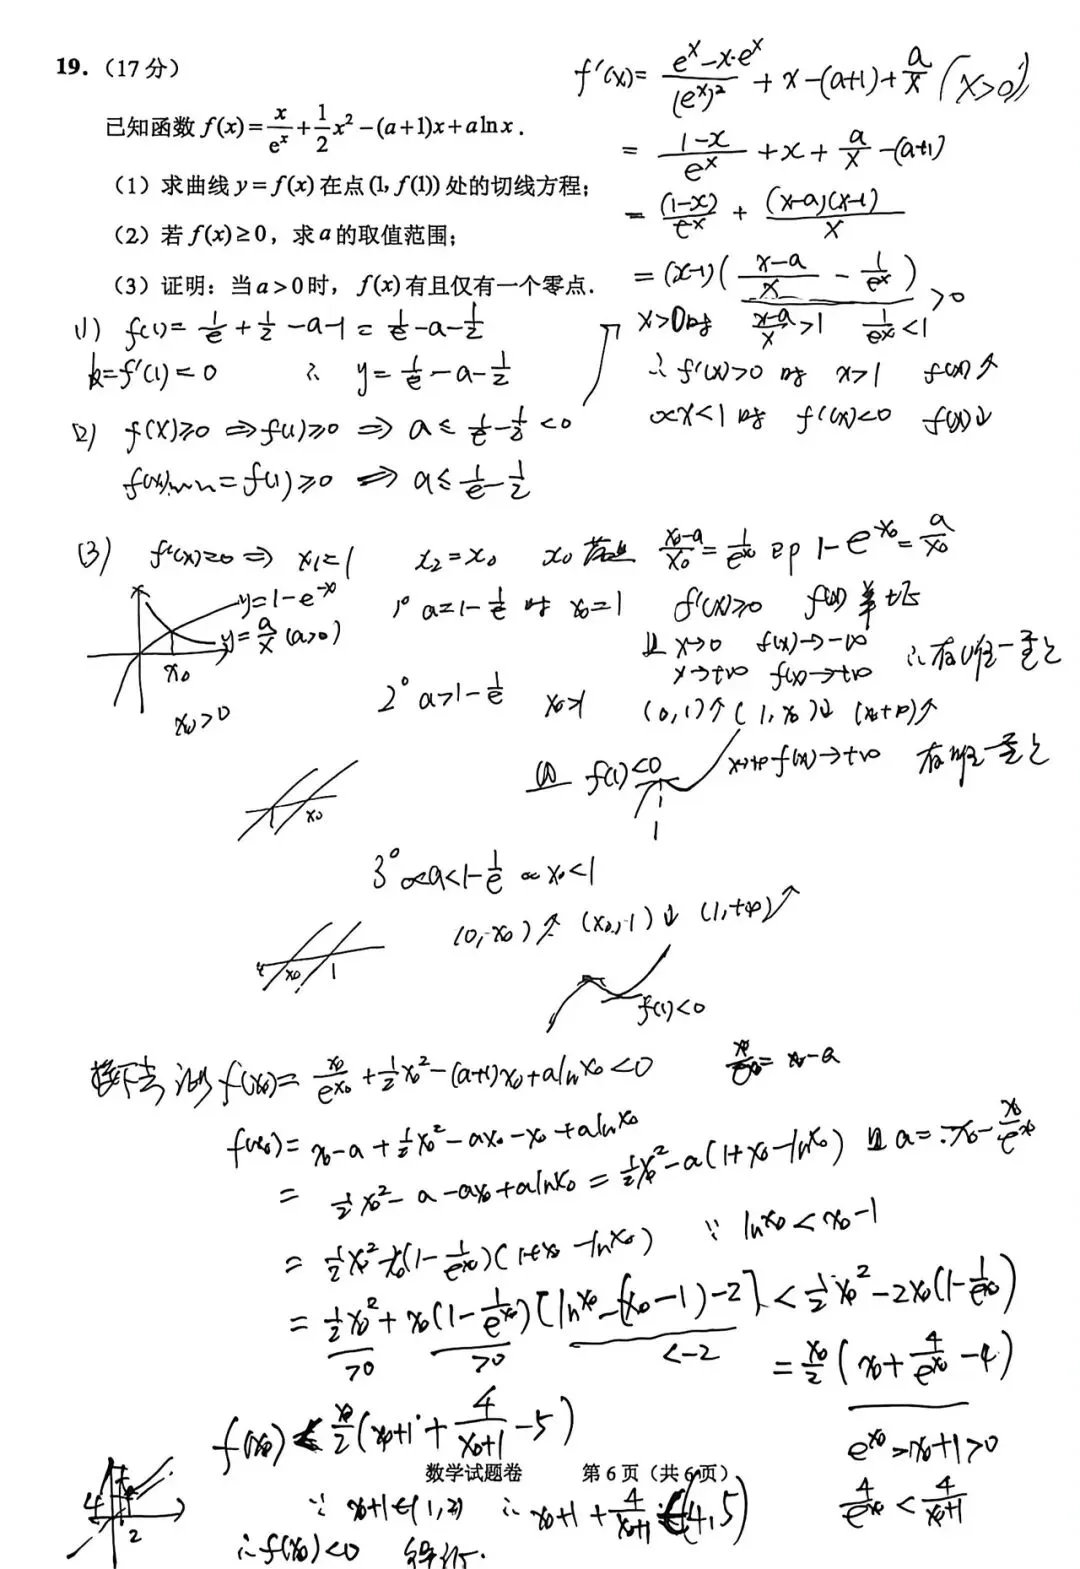 19.（17分）
已知函数 f(x)=x/e^x+1/2x²-(a+1)x+alnx.
（1）求曲线 y=f(x) 在点(1, f(1)) 处的切线方程;
（2）若 f(x)≥0，求a的取值范围;
（3）证明：当a>0时，f(x)有且仅有一个零点.
f'(x)=(e^x-x·e^x)/(e^x)²+x-(a+1)+a/x (x>0)
=(1-x)/e^x+x+a/x-(a+1)
=(1-x)/e^x+(x-a)(x-1)/x
=(x-1)((x-a)/x-1/e^x)
>0
x>0时 (x-a)/x>1 1/e^x<1
∴f'(x)>0 时 x>1 f(x)↑
0<x<1时 f'(x)<0 f(x)↓
(1) f(1)=1/e+1/2-a-1=1/e-a-1/2
k=f'(1)=0 ∴ y=1/e-a-1/2
(2) f(x)≥0⇒f(1)≥0⇒a≤1/e-1/2<0
f(x)min=f(1)≥0⇒a≤1/e-1/2
(3) f'(x)=0⇒x₁=1 x₂=x₀ x₀满足 (x₀-a)/x₀=1/e^x₀ 即 1-e^-x₀=a/x₀
y=1-e^-x
y=a/x (a>0)
x₀
x₀>0
1° a=1-1/e 时 x₀=1 f'(x)≥0 f(x)单增
且 x→0 f(x)→-∞
x→+∞ f(x)→+∞ ∴有唯一零点
2° a>1-1/e x₀>1 (0,1)↑(1,x₀)↓(x₀,+∞)↑
且 f(1)<0 x→+∞ f(x)→+∞ 有唯一零点
1
1 x₀
3° 0<a<1-1/e 0<x₀<1
(0,x₀)↑ (x₀,1)↓ (1,+∞)↑
x₀ 1
f(1)<0
接下去证明f(x₀)=x₀/e^x₀+1/2x₀²-(a+1)x₀+alnx₀<0 x₀/e^x₀=x₀-a
f(x₀)=x₀-a+1/2x₀²-ax₀-x₀+alnx₀
=1/2x₀²-a-ax₀+alnx₀=1/2x₀²-a(1+x₀-lnx₀) 且a=x₀-x₀/e^x₀
=1/2x₀²-x₀(1-1/e^x₀)(1+x₀-lnx₀) ∵lnx₀<x₀-1
=1/2x₀²+x₀(1-1/e^x₀)[lnx₀-(x₀-1)-2]<1/2x₀²-2x₀(1-1/e^x₀)
>0 >0 <-2
=x₀/2(x₀+4/e^x₀-4)
e^x₀>x₀+1>0
4/e^x₀<4/(x₀+1)
f(x₀)<x₀/2(x₀+1+4/(x₀+1)-5)
数学试题卷 第6页（共6页）
∵x₀+1∈(1,2) ∴x₀+1+4/(x₀+1)∈(4,5)
4
2
∴f(x₀)<0 得证.